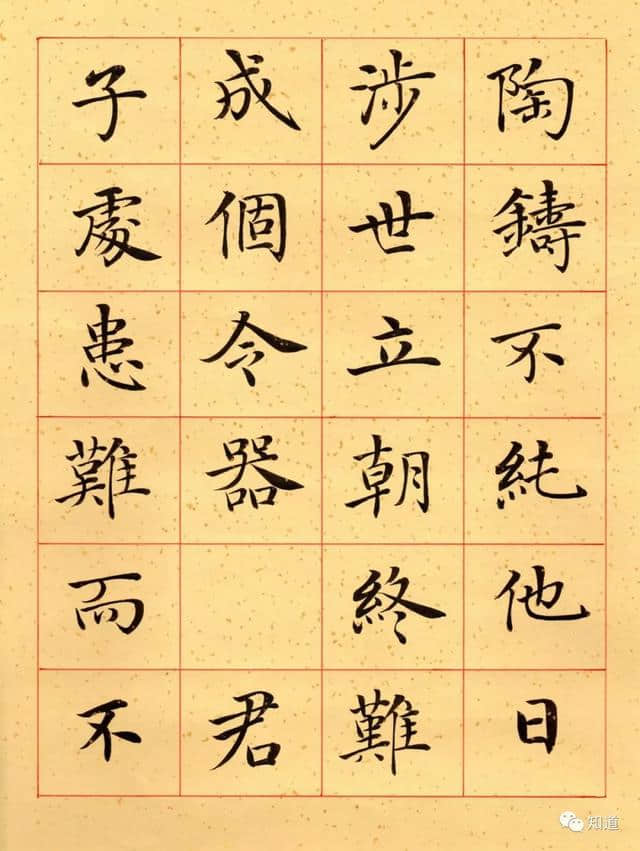 陶鑄不純他日
涉世立朝終難
成個令器 君
子處患難而不
知道